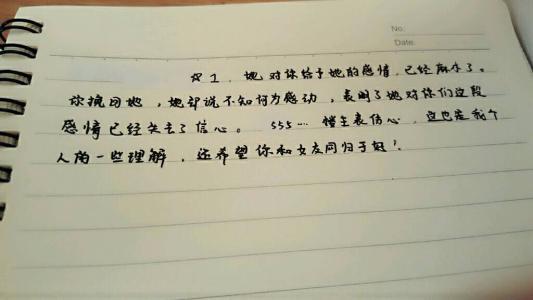 No.
Date.
☆1、她对你给予她的感情,已经麻木了。
你挽回她,她却说不知何为感动,表明了她对你们这段
感情已经失去了信心。 555… 楼主表伤心,这也是我个
人的一些理解,还希望你和女友同归于好!